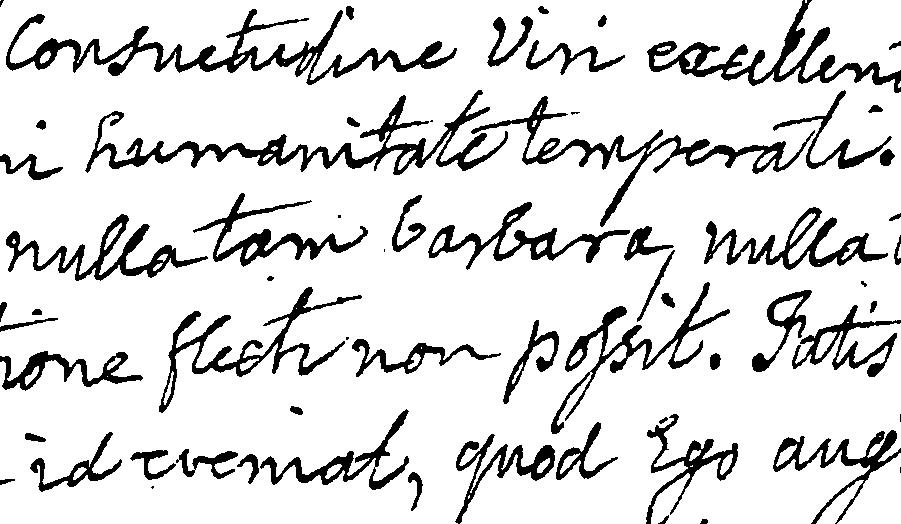 Consuetudine Viri excellen
ni humanitate temperati.
nulla tam barbara, nulla t
tione flecti non possit. Fatis
id eveniat, quod Ego aug